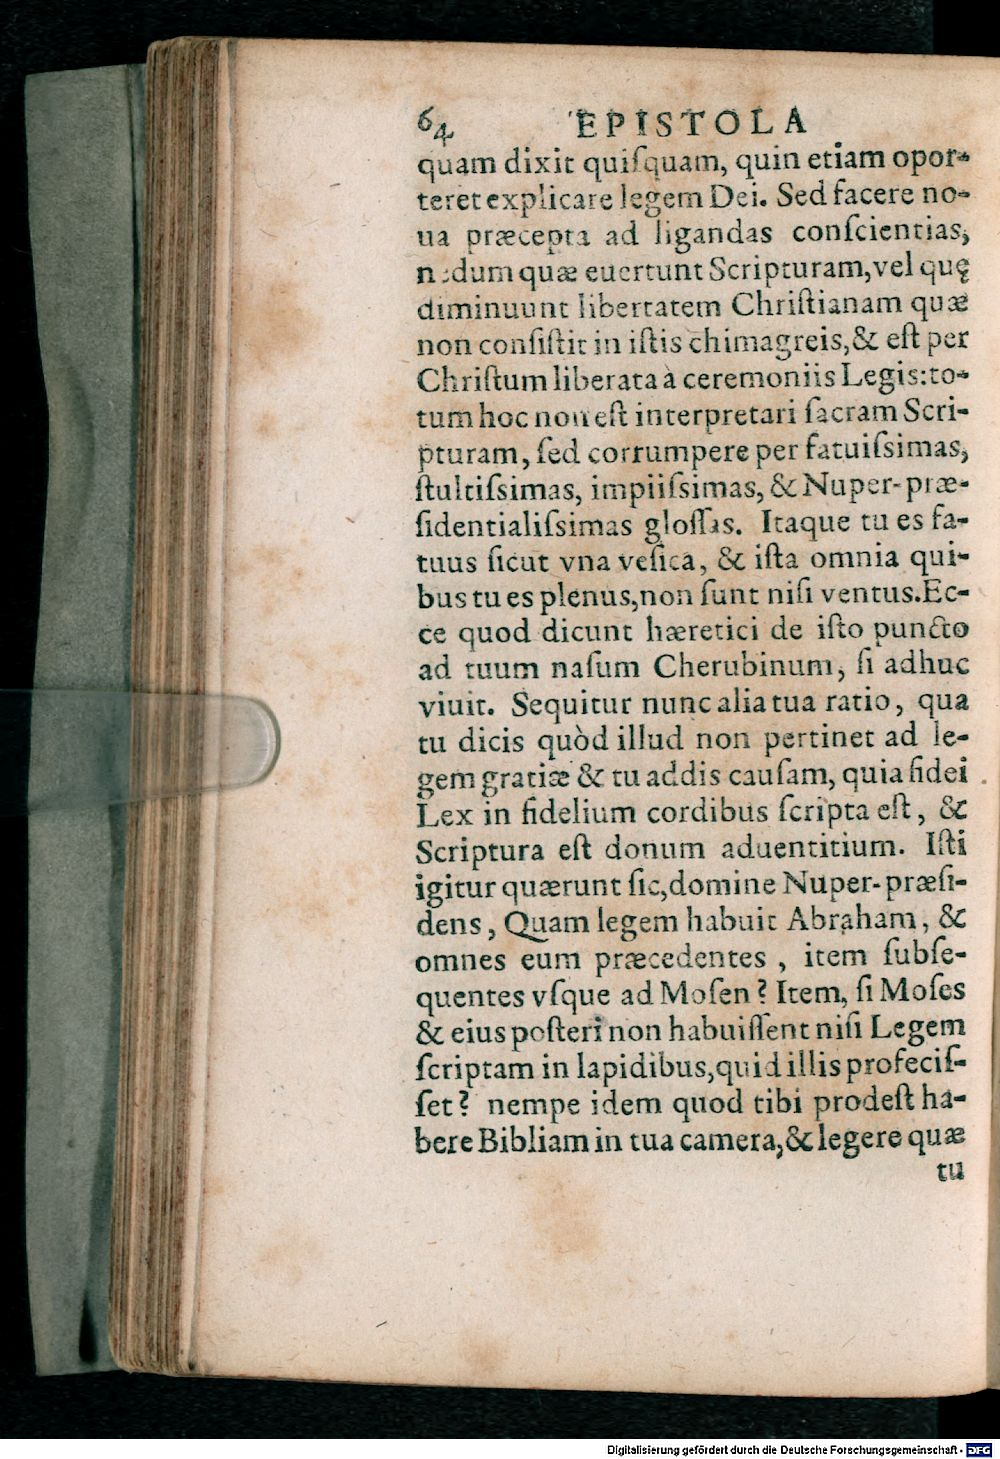 64 EPISTOLA
quam dixit quiſquam, quin etiam opor-
teret explicare legem Dei. Sed facere no-
ua præcepta ad ligandas conſcientias,
nedum quæ euertunt Scripturam, vel quę
diminuunt libertatem Chriſtianam quæ
non conſiſtit in iſtis chimagreis, & eſt per
Chriſtum liberata à ceremoniis Legis: to-
tum hoc non eſt interpretari ſacram Scri-
pturam, ſed corrumpere per fatuiſsimas,
ſtultiſsimas, impiiſsimas, & Nuper-præ-
ſidentialiſsimas gloſſas. Itaque tu es fa-
tuus ſicut vna veſica, & iſta omnia qui-
bus tu es plenus, non ſunt niſi ventus. Ec-
ce quod dicunt hæretici de iſto puncto
ad tuum naſum Cherubinum, ſi adhuc
viuit. Sequitur nunc alia tua ratio, qua
tu dicis quòd illud non pertinet ad le-
gem gratiæ & tu addis cauſam, quia fidei
Lex in fidelium cordibus ſcripta eſt, &
Scriptura eſt donum aduentitium. Iſti
igitur quærunt ſic, domine Nuper-præſi-
dens, Quam legem habuit Abraham, &
omnes eum præcedentes, item ſubſe-
quentes vſque ad Moſen? Item, ſi Moſes
& eius poſteri non habuiſſent niſi Legem
ſcriptam in lapidibus, quid illis profeciſ-
ſet? nempe idem quod tibi prodeſt ha-
bere Bibliam in tua camera, & legere quæ
tu
Digitalisierung gefördert durch die Deutsche Forschungsgemeinschaft - DFG